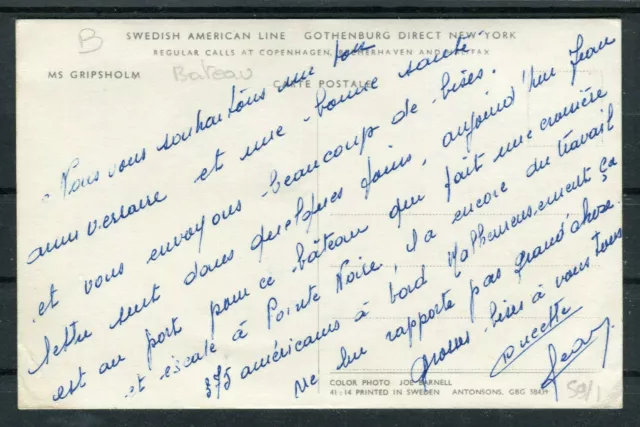 B
SWEDISH AMERICAN LINE GOTHENBURG DIRECT NEW YORK
REGULAR CALLS AT COPENHAGEN, BREMERHAVEN AND HALIFAX
MS GRIPSHOLM
Bateau
CARTE POSTALE
Nous vous souhaitons un bon
anniversaire et une bonne santé
et vous envoyons beaucoup de bises.
lettre suit dans quelques jours, aujourd'hui Jean
est au port pour ce bâteau qui fait une croisière
et escale à Pointe Noire il a encore du travail
375 américains à bord Malheureusement ça
ne lui rapporte pas grand'chose.
grosses bises à vous tous
Lucette
Jean
COLOR PHOTO JOE BARNELL
41:14 PRINTED IN SWEDEN ANTONSONS, GBG 58439